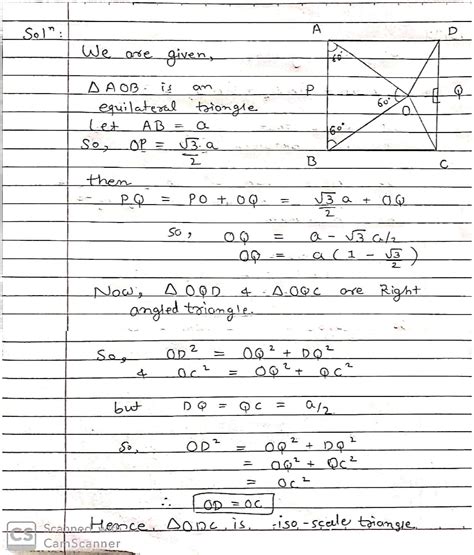 Solⁿ:
We are given,
Δ AOB is an
equilateral triangle
Let AB = a
So, OP = √3/2 a
A
D
60
P
60°
O
Q
60°
B
C
then
PQ = PO + OQ = √3/2 a + OQ
so, OQ = a - √3 a/2
OQ = a (1 - √3/2)
Now, Δ OQD & Δ OQC are Right
angled triangle.
So, OD² = OQ² + DQ²
& OC² = OQ² + QC²
but DQ = QC = a/2
So, OD² = OQ² + DQ²
= OQ² + QC²
= OC²
∴ OD = OC
Hence, Δ ODC is iso-scele triangle
CS Scanned with
CamScanner